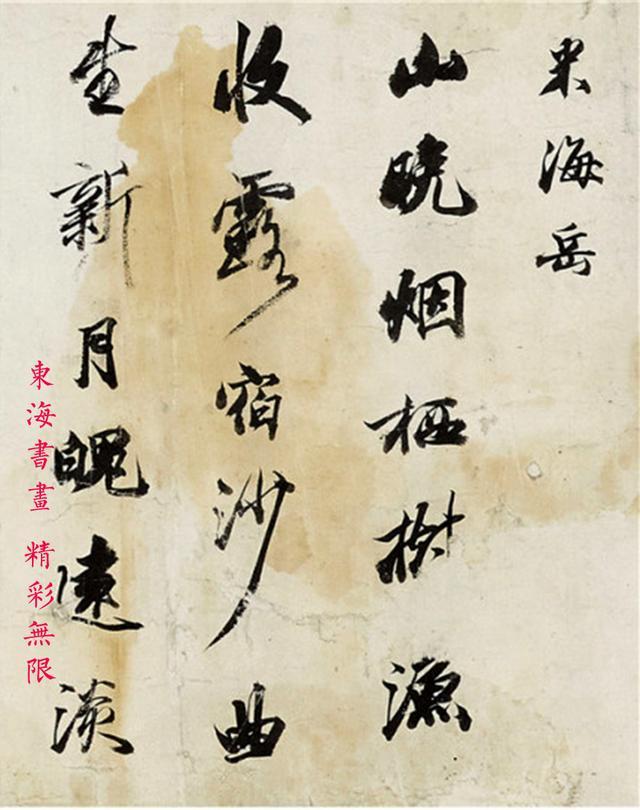 米海岳
山晚烟栖樹漁
收露宿沙曲
生新月魄遠淡
東海書畫 精彩無限